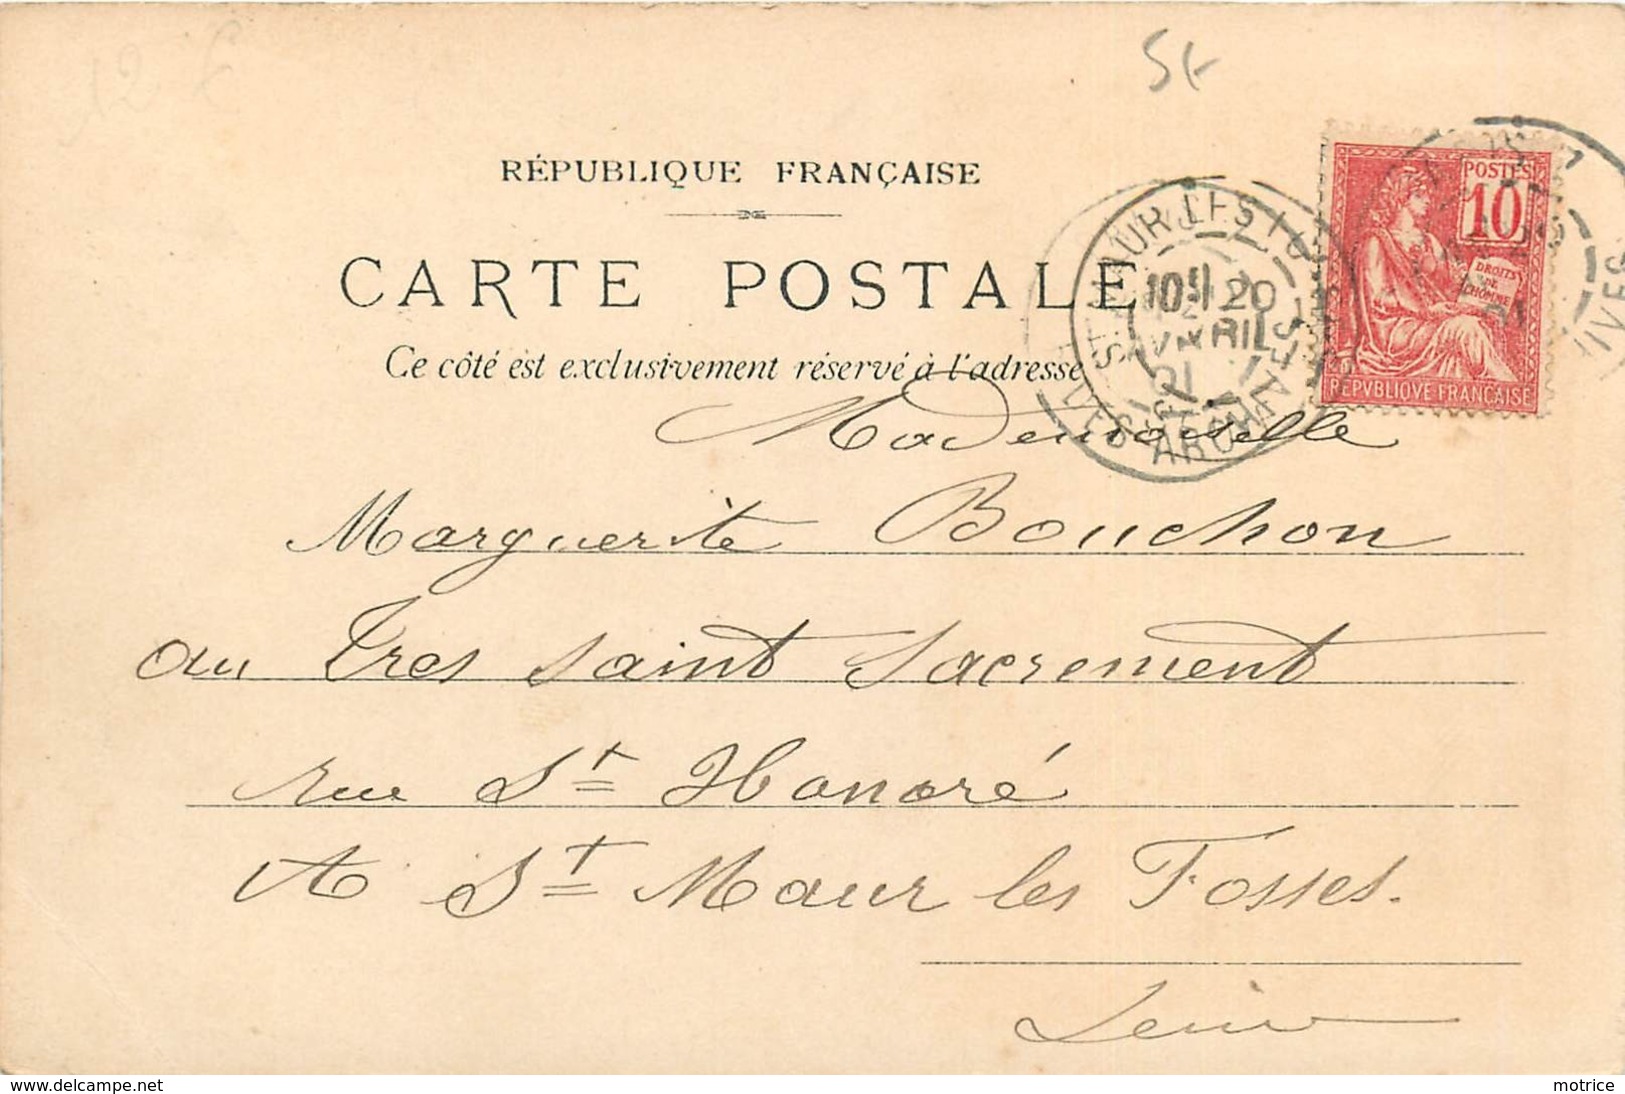 12 €
5f
RÉPUBLIQUE FRANÇAISE
CARTE POSTALE
Ce côté est exclusivement réservé à l'adresse
POSTES
10
DROITS
DE
L'HOMME
REPVBLIQVE FRANÇAISE
ST MAUR LES
10 20
AVRIL
01
Mademoiselle
Marguerite Bouchon
au Tres saint Sacrement
rue St Honoré
A St Maur les Fossés.
Seine
www.delcampe.net
motrice